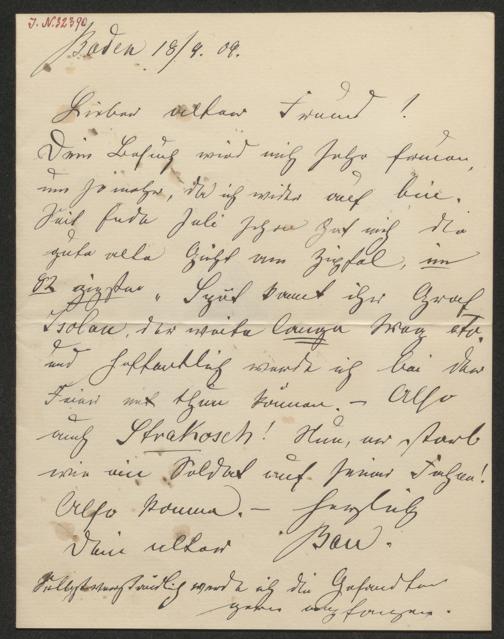 J. N. 32390
Baden 18/9. 09.
Lieber alter Freund!
Dein Besuch wird mich sehr freuen,
um so mehr, da ich wieder auf bin.
Seit Ende Juli schon hat mich die
gute alte Gicht am Zipfel, im
82 zigsten „Spät kommt ihr Graf
Isolan, der weite lange Weg etc.
und hoffentlich werde ich bei der
Feier mit thun können. – Also
auch Strakosch! Nun, er starb
wie ein Soldat auf seiner Fahne!
Also komme. – Herzlich
Dein alter
Selbstverständlich werde ich die Gesandten
gern empfangen.